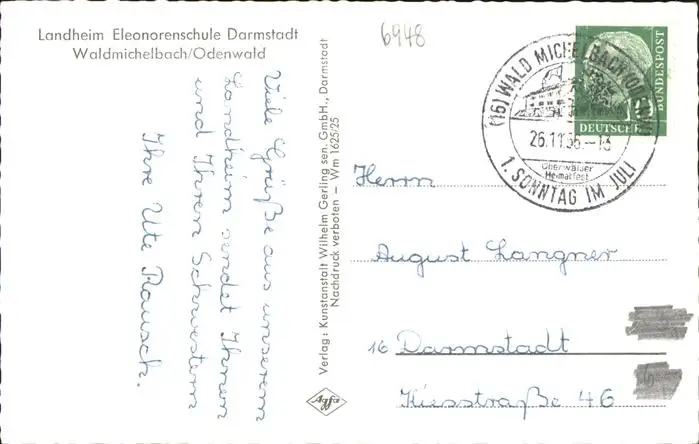 Landheim Eleonorenschule Darmstadt
Waldmichelbach/Odenwald
Viele Grüße aus unserem
Landheim sendet Ihnen
und Ihren Schwestern
Ihre Ute Rausch.
Verlag: Kunstanstalt Wilhelm Gerling sen. GmbH., Darmstadt
Nachdruck verboten – Wm 1625/25
Agfa
6948
BUNDESPOST
DEUTSCHE
(16) WALD MICHELBACH (ODENW)
26.11.56.–13
Überwälder
Heimatfest
1. SONNTAG IM JULI
Herrn
August Langner
16 Darmstadt
Kiesstraße 46